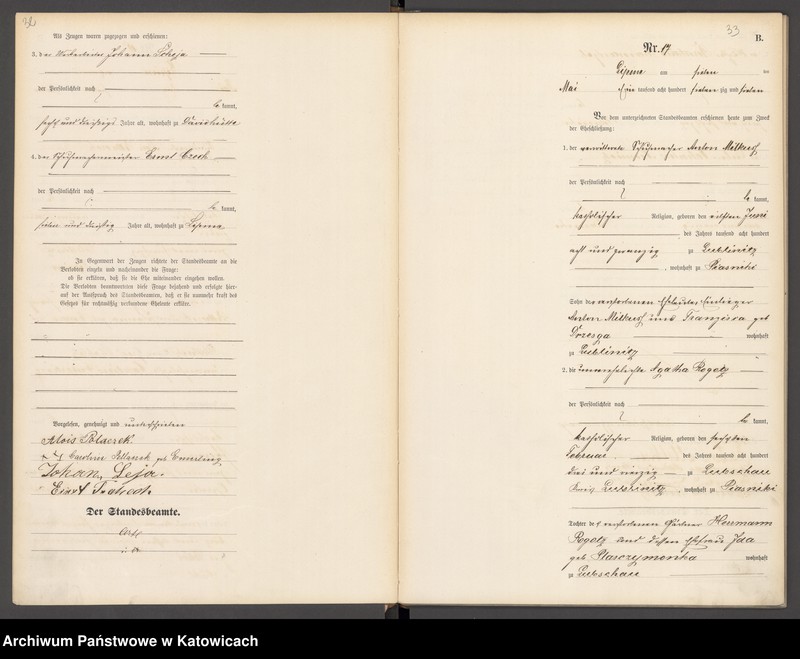 32
Als Zeugen waren zugezogen und erschienen:
3. der Johann
der Persönlichkeit nach
be kannt,
sechs und dreißig Jahre alt, wohnhaft zu Davidhütte
4. der Schuhmachermeister Ernst
der Persönlichkeit nach
be kannt,
sieben und dreißig Jahre alt, wohnhaft zu Lipine
In Gegenwart der Zeugen richtete der Standesbeamte an die
Verlobten einzeln und nacheinander die Frage:
ob sie erklären, daß sie die Ehe miteinander eingehen wollen.
Die Verlobten beantworteten diese Frage bejahend und erfolgte hier-
auf der Ausspruch des Standesbeamten, daß er sie nunmehr kraft des
Gesetzes für rechtmäßig verbundene Eheleute erkläre.
Vorgelesen, genehmigt und unterschrieben
Alois Polaczek.
Caroline geb
Johan
Der Standesbeamte.
33
B.
Nr. 17
Lipine am sieben ten
Mai Ein tausend acht hundert sieben zig und sieben
Vor dem unterzeichneten Standesbeamten erschienen heute zum Zweck
der Eheschließung:
1. der verwittwete Schuhmacher Anton
der Persönlichkeit nach
be kannt,
katholischer Religion, geboren den elften Juni
des Jahres tausend acht hundert
acht und zwanzig zu Lublinitz
, wohnhaft zu Piasniki
Sohn der verstorbenen Eheleute Einlieger
Anton und Franziska geb
wohnhaft
zu Lublinitz
2. die unverehelichte Agatha Rogotz
der Persönlichkeit nach
be kannt,
katholischer Religion, geboren den sechsten
Februar des Jahres tausend acht hundert
drei und vierzig zu Lubschau
Kreis Lublinitz, wohnhaft zu Piasniki
Tochter des verstorbenen Gärtner Herrmann
Rogotz und dessen Ehefrau Ida
geb wohnhaft
zu Lubschau
Archiwum Państwowe w Katowicach